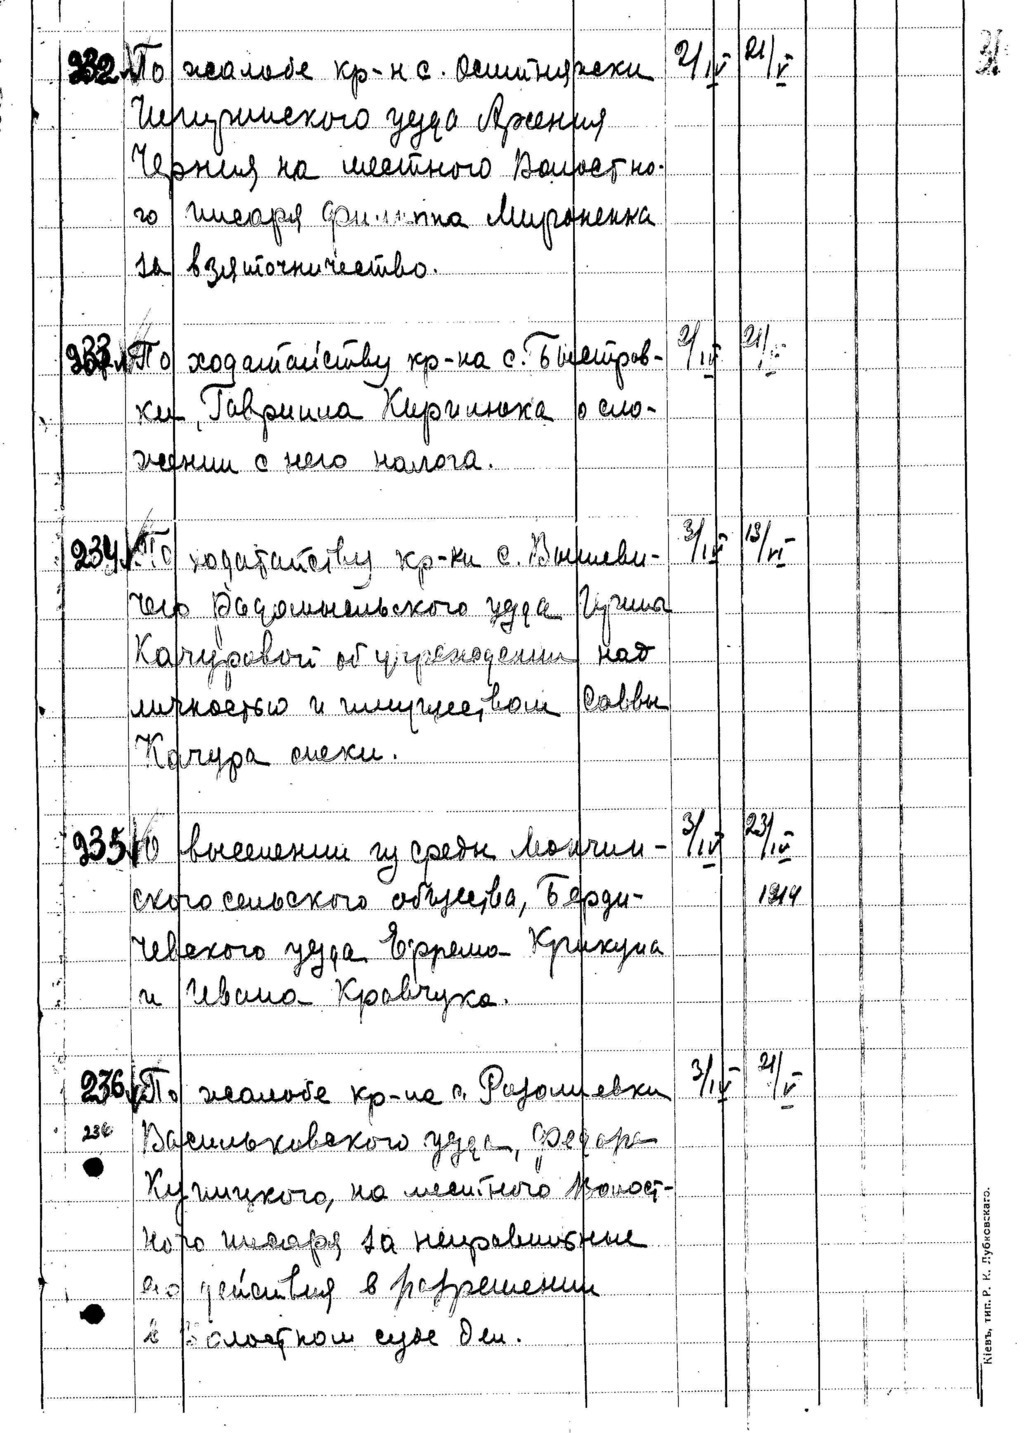 232 По жалобе кр-н с. Оситняжки 2/IV 21/V
Чигиринского уезда Арсения
Черния на местного Волостно-
го писаря Филиппа Мироненка
за взяточничество.
233 По ходатайству кр-на с. Быстров- 2/IV 21/V
ки, Гавриила Кирилюка о сло-
жении с него налога.
234 По ходатайству кр-ки с. Вышеви- 3/IV 13/VI
чего Радомысльского уезда
Качуровой об учреждении над
личностью и имуществом Саввы
Качура опеки.
235 О выселении из среды 3/IV 23/IV
ского сельского общества, Берди- 1914
чевского уезда Ефрема Крикуна
и Ивана Кравчука.
236 По жалобе кр-на с. Розалиевки 3/IV 21/V
236 Васильковского уезда, Федора
на местного Волост-
ного писаря за неправильные
его действия в разрешении
в Волостном суде дел.
Кіевъ, тип. Р. К. Лубковскаго.